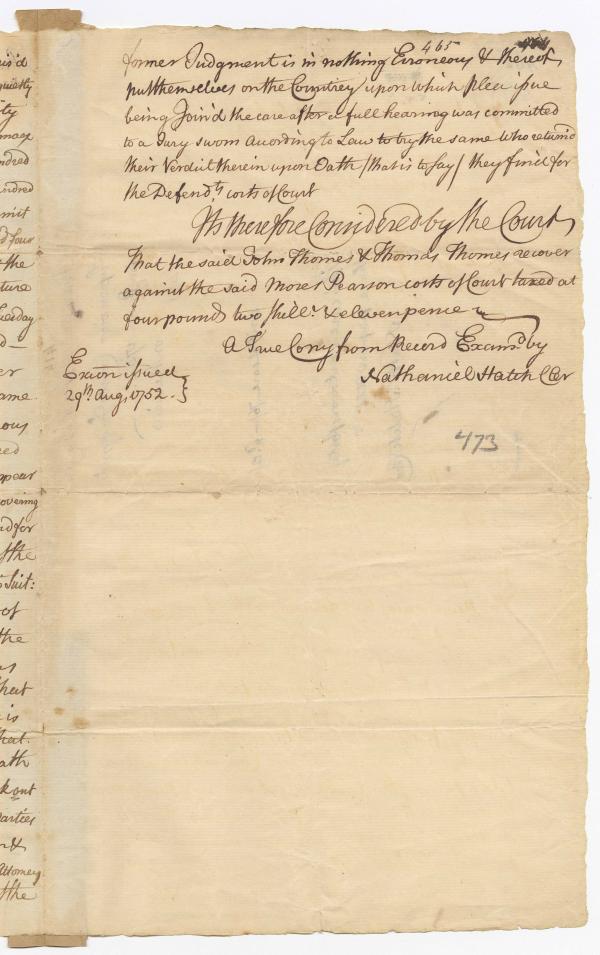 465
former Judgment is in nothing Erroneous & thereof
put themselves on the Countrey upon which plea issue
being Join'd the case after a full hearing was committed
to a Jury sworn According to Law to try the same who return'd
their Verdict therein upon Oath / that is to say / they find for
the Defendts costs of Court
Its therefore Considered by the Court
That the said John Thomes & Thomas Thomes recover
against the said Moses Pearson costs of Court taxed at
four pounds two shills. & eleven pence
A True Copy from Record Examd by
Nathaniel Hatch Cler
Exeon issued
29th Aug. 1752. }
473
quietly
ty
ndred
ndred
mit
d four
the
ture
uesday
er
ame
ous
ppear
overing
nd for
the
Suit:
of
the
as
that
is
that
ath
k out
arties
r &
Attorney
the